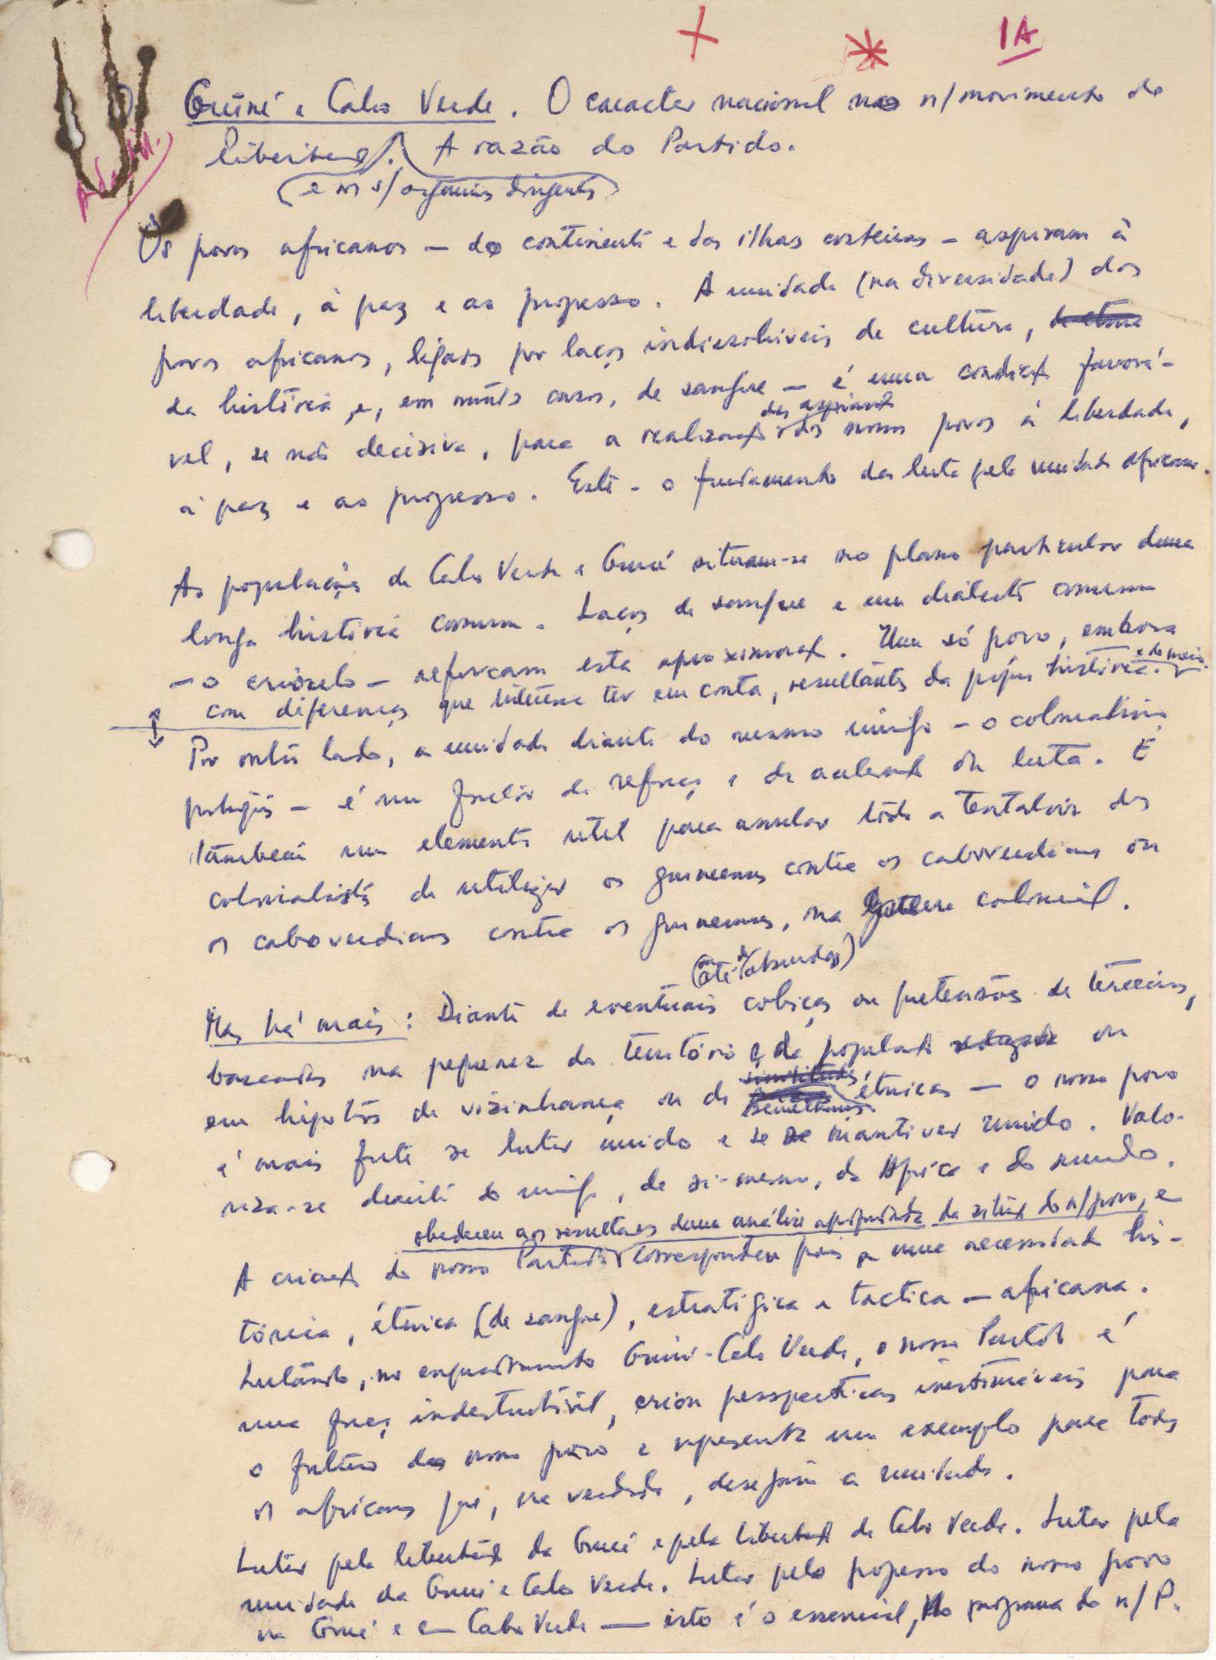 1A
Guiné e Cabo Verde. O caracter nacional no n/movimento de
libertação. A razão do Partido.
(e n s/ organismos dirigentes)
Os povos africanos — do continente e das ilhas costeiras — aspiram à
liberdade, à paz e ao progresso. A unidade (na diversidade) dos
povos africanos, ligados por laços indissolúveis de cultura,
da história e, em muitos casos, de sangue — é uma condição favorá-
vel, se não decisiva, para a realização das aspirações dos nossos povos à liberdade,
à paz e ao progresso. Este - o fundamento da luta pela unidade africana.
As populações de Cabo Verde e Guiné situam-se no plano particular duma
longa história comum. Laços de sangue e um dialecto comum
— o crioulo — reforçam esta aproximação. Um só povo, embora
com diferenças que interessa ter em conta, resultantes da própria história e do meio.
Por outro lado, a unidade diante do mesmo inimigo — o colonialismo
português — é um factor de reforço e de aceleração da luta. É
também um elemento útil para anular toda a tentativa dos
colonialistas de utilizar os guineenses contra os caboverdianos ou
os caboverdianos contra os guineenses, na guerra colonial.
(ou até absurdas)
Mas há mais: Diante de eventuais cobiças ou pretensões de terceiros,
baseadas na pequenez do território e da população ou
em hipóteses de vizinhança ou de semelhanças étnicas — o nosso povo
é mais forte se lutar unido e se se mantiver unido. Valo-
riza-se diante do inimigo, de si-mesmo, da África e do mundo.
obedeceu aos resultados duma análise aprofundada da situação do n/povo, e
A criação do nosso Partido correspondeu pois a uma necessidade his-
tórica, étnica (de sangue), estratégica e tactica — africana.
Lutando, no enquadramento Guiné-Cabo Verde, o nosso Partido é
uma força indestrutível, criou perspectivas inestimáveis para
o futuro do nosso povo e representa um exemplo para todos
os africanos que, na verdade, desejam a unidade.
Lutar pela libertação da Guiné e pela libertação de Cabo Verde. Lutar pela
unidade da Guiné e Cabo Verde. Lutar pelo progresso do nosso povo
na Guiné e em Cabo Verde — isto é o essencial, do programa do n/P.